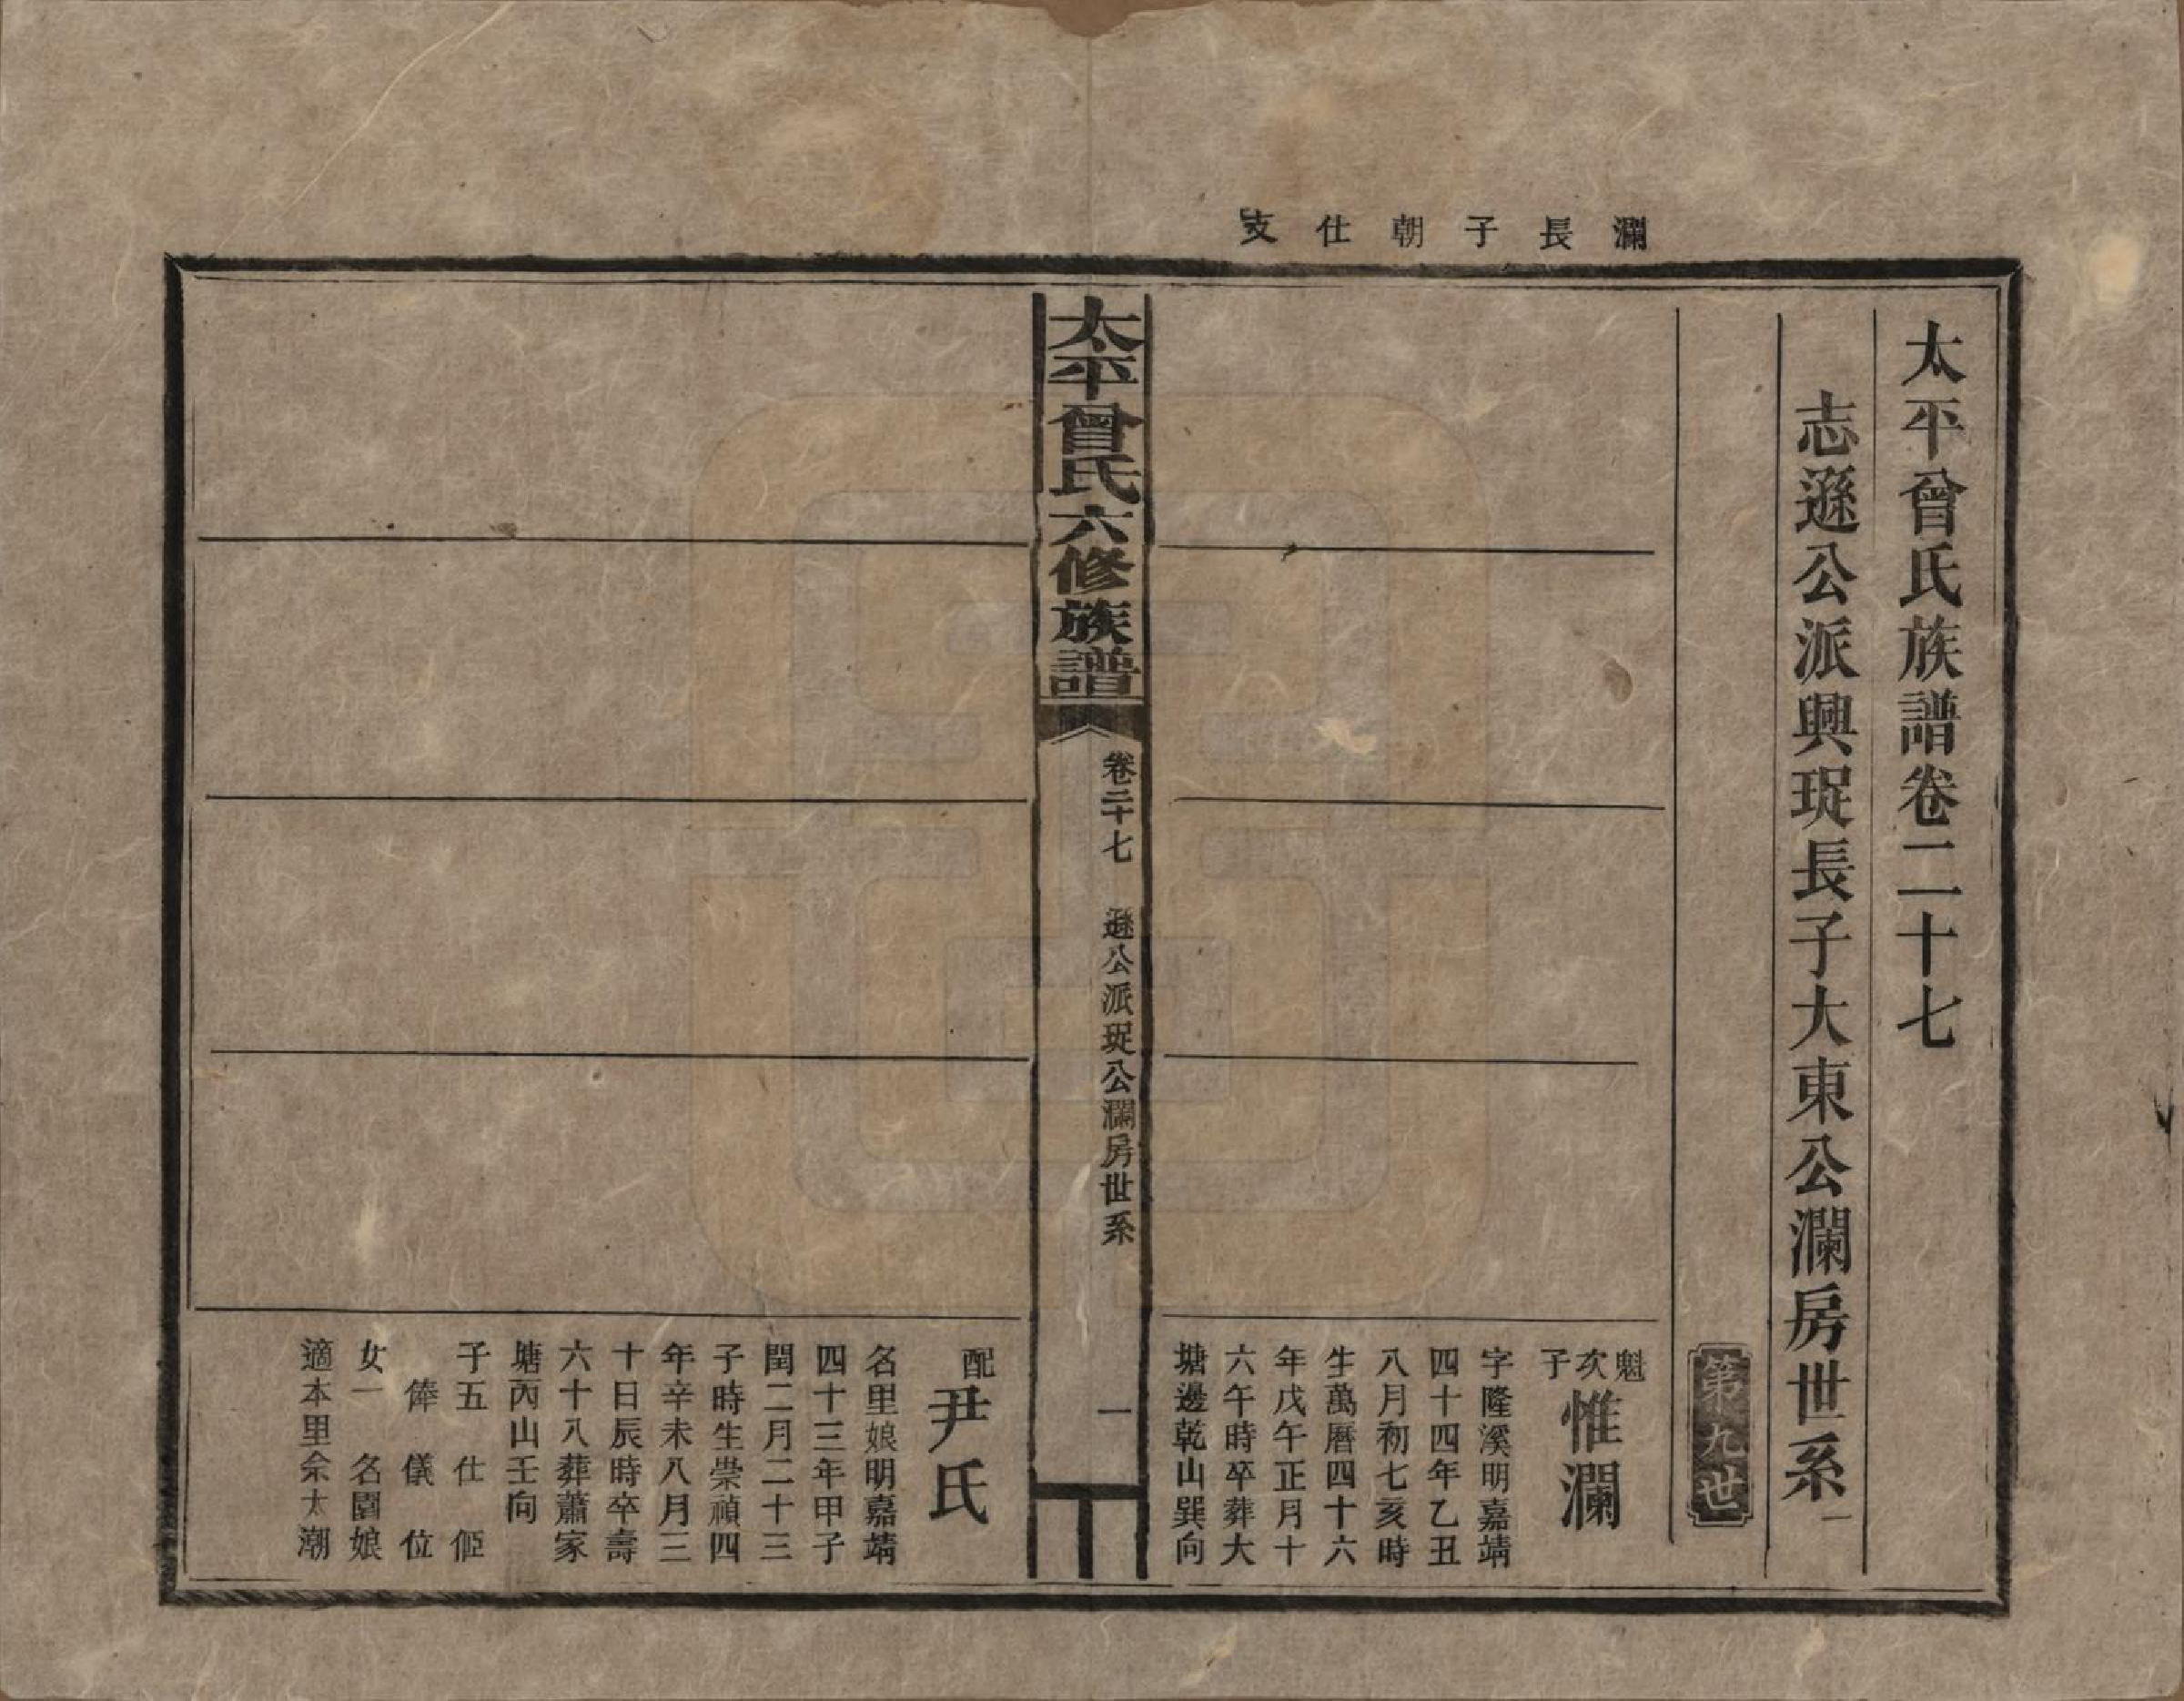 瀾長子朝仕支
太平曾氏族譜卷二十七
志遜公派興珽長子大東公瀾房世系一
第九世
魁次子惟瀾
字隆溪明嘉靖
四十四年乙丑
八月初七亥時
生萬曆四十六
年戊午正月十
六午時卒葬大
塘邊乾山巽向
太平曾氏六修族譜
卷二十七 遜公派珽公瀾房世系
一
配尹氏
名里娘明嘉靖
四十三年甲子
閏二月二十三
子時生崇禎四
年辛未八月三
十日辰時卒壽
六十八葬蕭家
塘丙山壬向
子五 仕 㑌
俸 儀 位
女一 名園娘
適本里余太潮